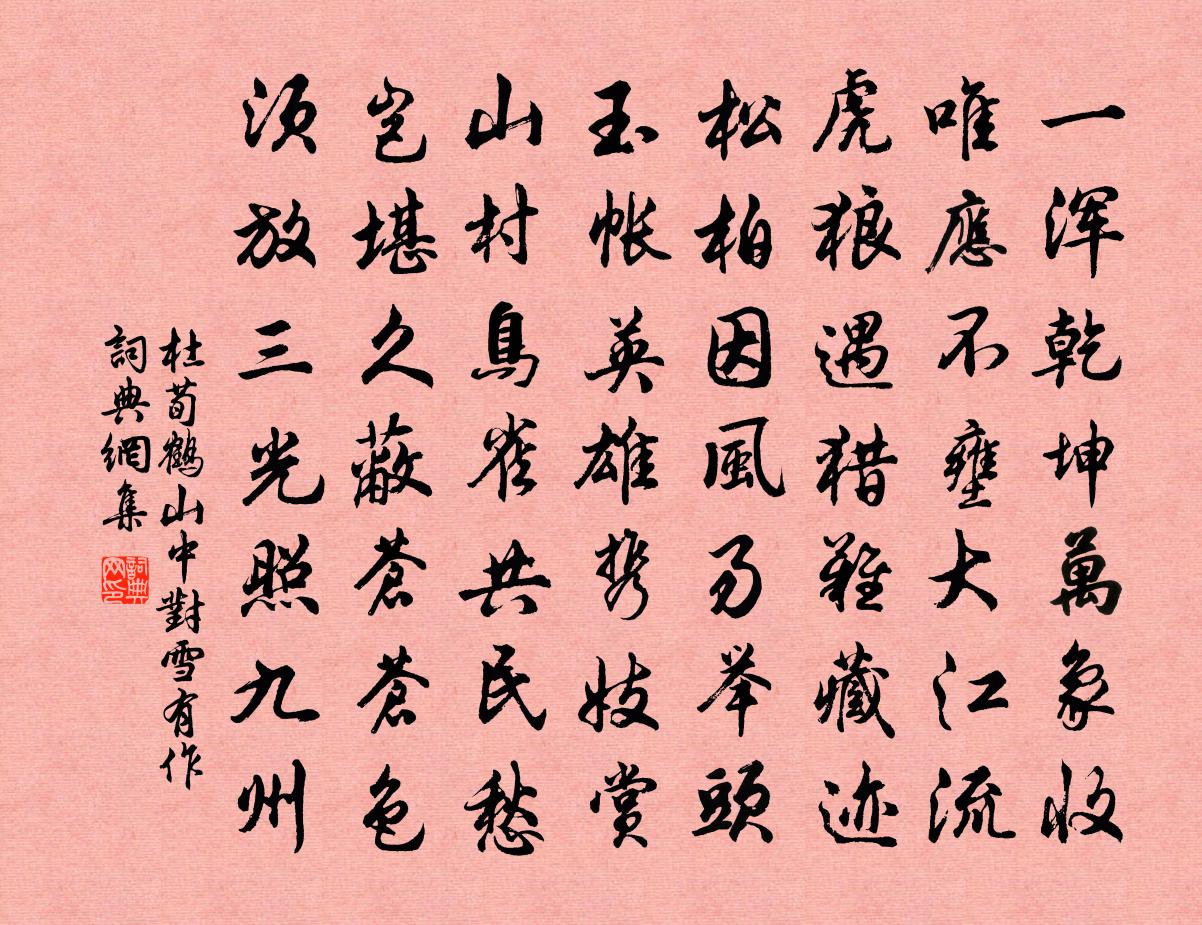 一浑乾坤萬象收
唯應不壅大江流
虎狼遇猎難藏迹
松柏因風易举頭
玉帐英雄携妓赏
山村鳥雀共民愁
岂堪久蔽蒼蒼色
须放三光照九州
杜荀鶴山中對雪有作
詞典網集
詞典网印